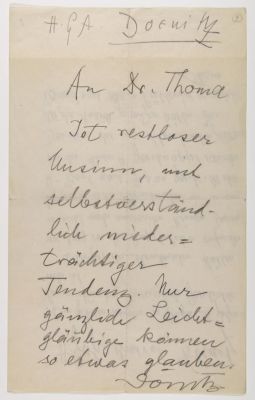 H. G A Dornitz
An Dr. Thoma
Ist restloser
Unsinn, und
selbstverständ-
lich nieder=
trächtiger
Tendenz. Nur
gänzlich Leicht=
gläubige können
so etwas glauben.